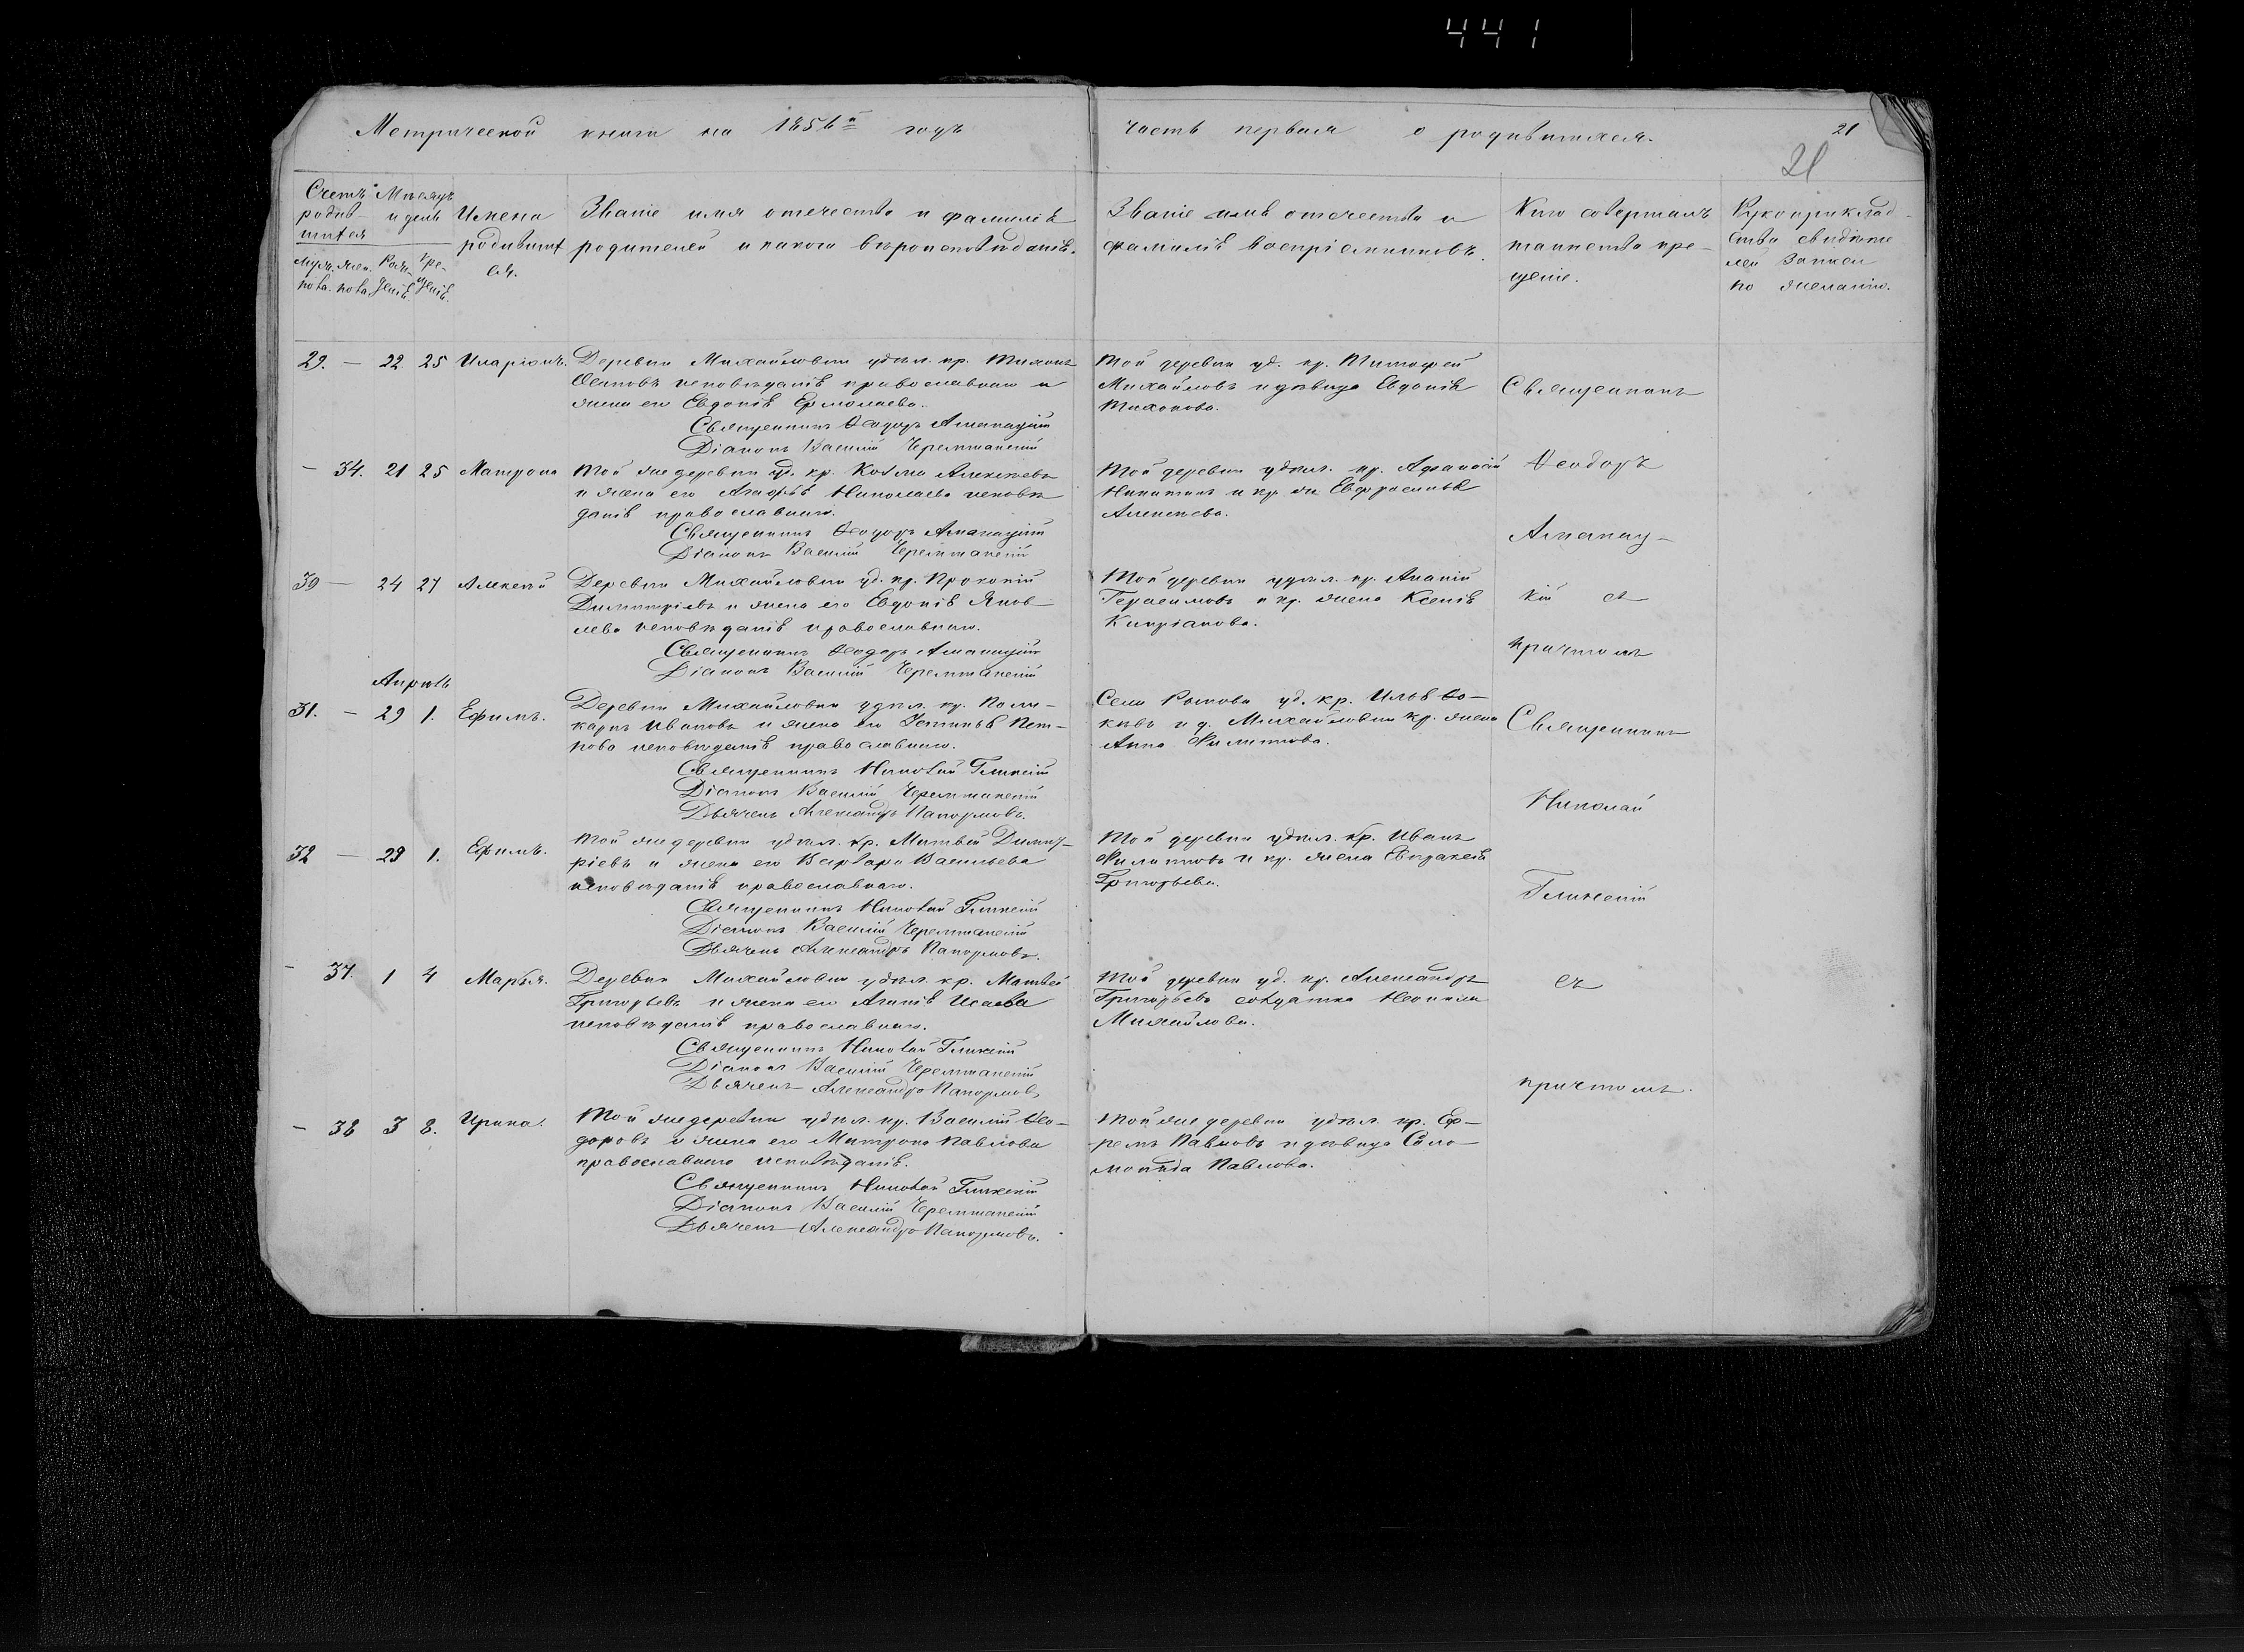 441
Метрической книги на 1856й годъ часть первая о родившихся. 21
21
Счетъ родив-шихся
Мѣсяцъ и день
Имена родившихся.
Званіе имя отечество и фамилія
родителей и какого вѣроисповѣданія.
Званіе имя отечество и
фамилія воспріемниковъ.
Кто совершалъ
таинство кре-
щенія.
Рукоприклад-
ство свидѣте
лей записи
по желанію.
Муж. Жен. Рож- Кре-
пола. пола. денія. щенія.
29. — 22. 25 Иларіонъ. Деревни Михайловки удѣл. кр. Тихонъ
Осиповъ исповѣданія православнаго и
жена его Евдокія Ермолаева.
Священникъ Ѳеодоръ Алманацкій
Діаконъ Василій Черемшанскій
Той деревни уд. кр. Тимофей
Михайловъ и дѣвица Евдокія
Тихонова.
Священникъ
— 34. 21 25 Матрона Той же деревни уд. кр. Козма Алексѣевъ
и жена его Агафья Николаева исповѣ
данія православнаго.
Священникъ Ѳеодоръ Алманацкій
Діаконъ Василій Черемшанскій
Той деревни удѣл. кр. Афанасій
Никитинъ и кр. жен. Евфросинья
Алексѣева.
Ѳеодоръ
Алманац-
30 — 24 27 Алексѣй Деревни Михайловки уд. кр. Прокопій
Димитріевъ и жена его Евдокія Яков-
лева исповѣданія православнаго.
Священникъ Ѳеодоръ Алманацкій
Діаконъ Василій Черемшанскій
Той деревни удѣл. кр. Ананій
Герасимовъ и кр. жена Ксенія
Кипріанова.
кій съ
причтомъ
Апрѣль
31. — 29 1. Ефимъ. Деревни Михайловки удѣл. кр. Поли-
карпъ Ивановъ и жена его Устинья Пет-
рова исповѣданія православнаго.
Священникъ Николай Глинскій
Діаконъ Василій Черемшанскій
Дьячекъ Александръ Пановъ
Села уд. кр. Илья
и д. Михайловки кр. жена
Анна Филиппова.
Священникъ
Николай
32 — 29 1. Ефимъ. Той же деревни удѣл. кр. Матвей Димит-
ріевъ и жена его Варвара Васильева
исповѣданія православнаго.
Священникъ Николай Глинскій
Діаконъ Василій Черемшанскій
Дьячекъ Александръ
Той деревни удѣл. кр. Иванъ
Филипповъ и кр. жена Евпраксія
Григорьева.
Глинскій
— 37. 1 4 Марья. Деревни Михайловки удѣл. кр. Матвей
Григорьевъ и жена его Агапія Исаева
исповѣданія православнаго.
Священникъ Николай Глинскій
Діаконъ Василій Черемшанскій
Дьячекъ Александръ
Той деревни уд. кр. Александръ
Григорьевъ солдатка Неонила
Михайлова.
съ
причтомъ.
— 38 3 8. Ирина. Той же деревни удѣл. кр. Василій Ѳео-
доровъ и жена его Матрона Павлова
православнаго исповѣданія.
Священникъ Николай Глинскій
Діаконъ Василій Черемшанскій
Дьячекъ Александръ
Той же деревни удѣл. кр. Еф-
ремъ Павловъ и дѣвица Соло-
монида Павлова.